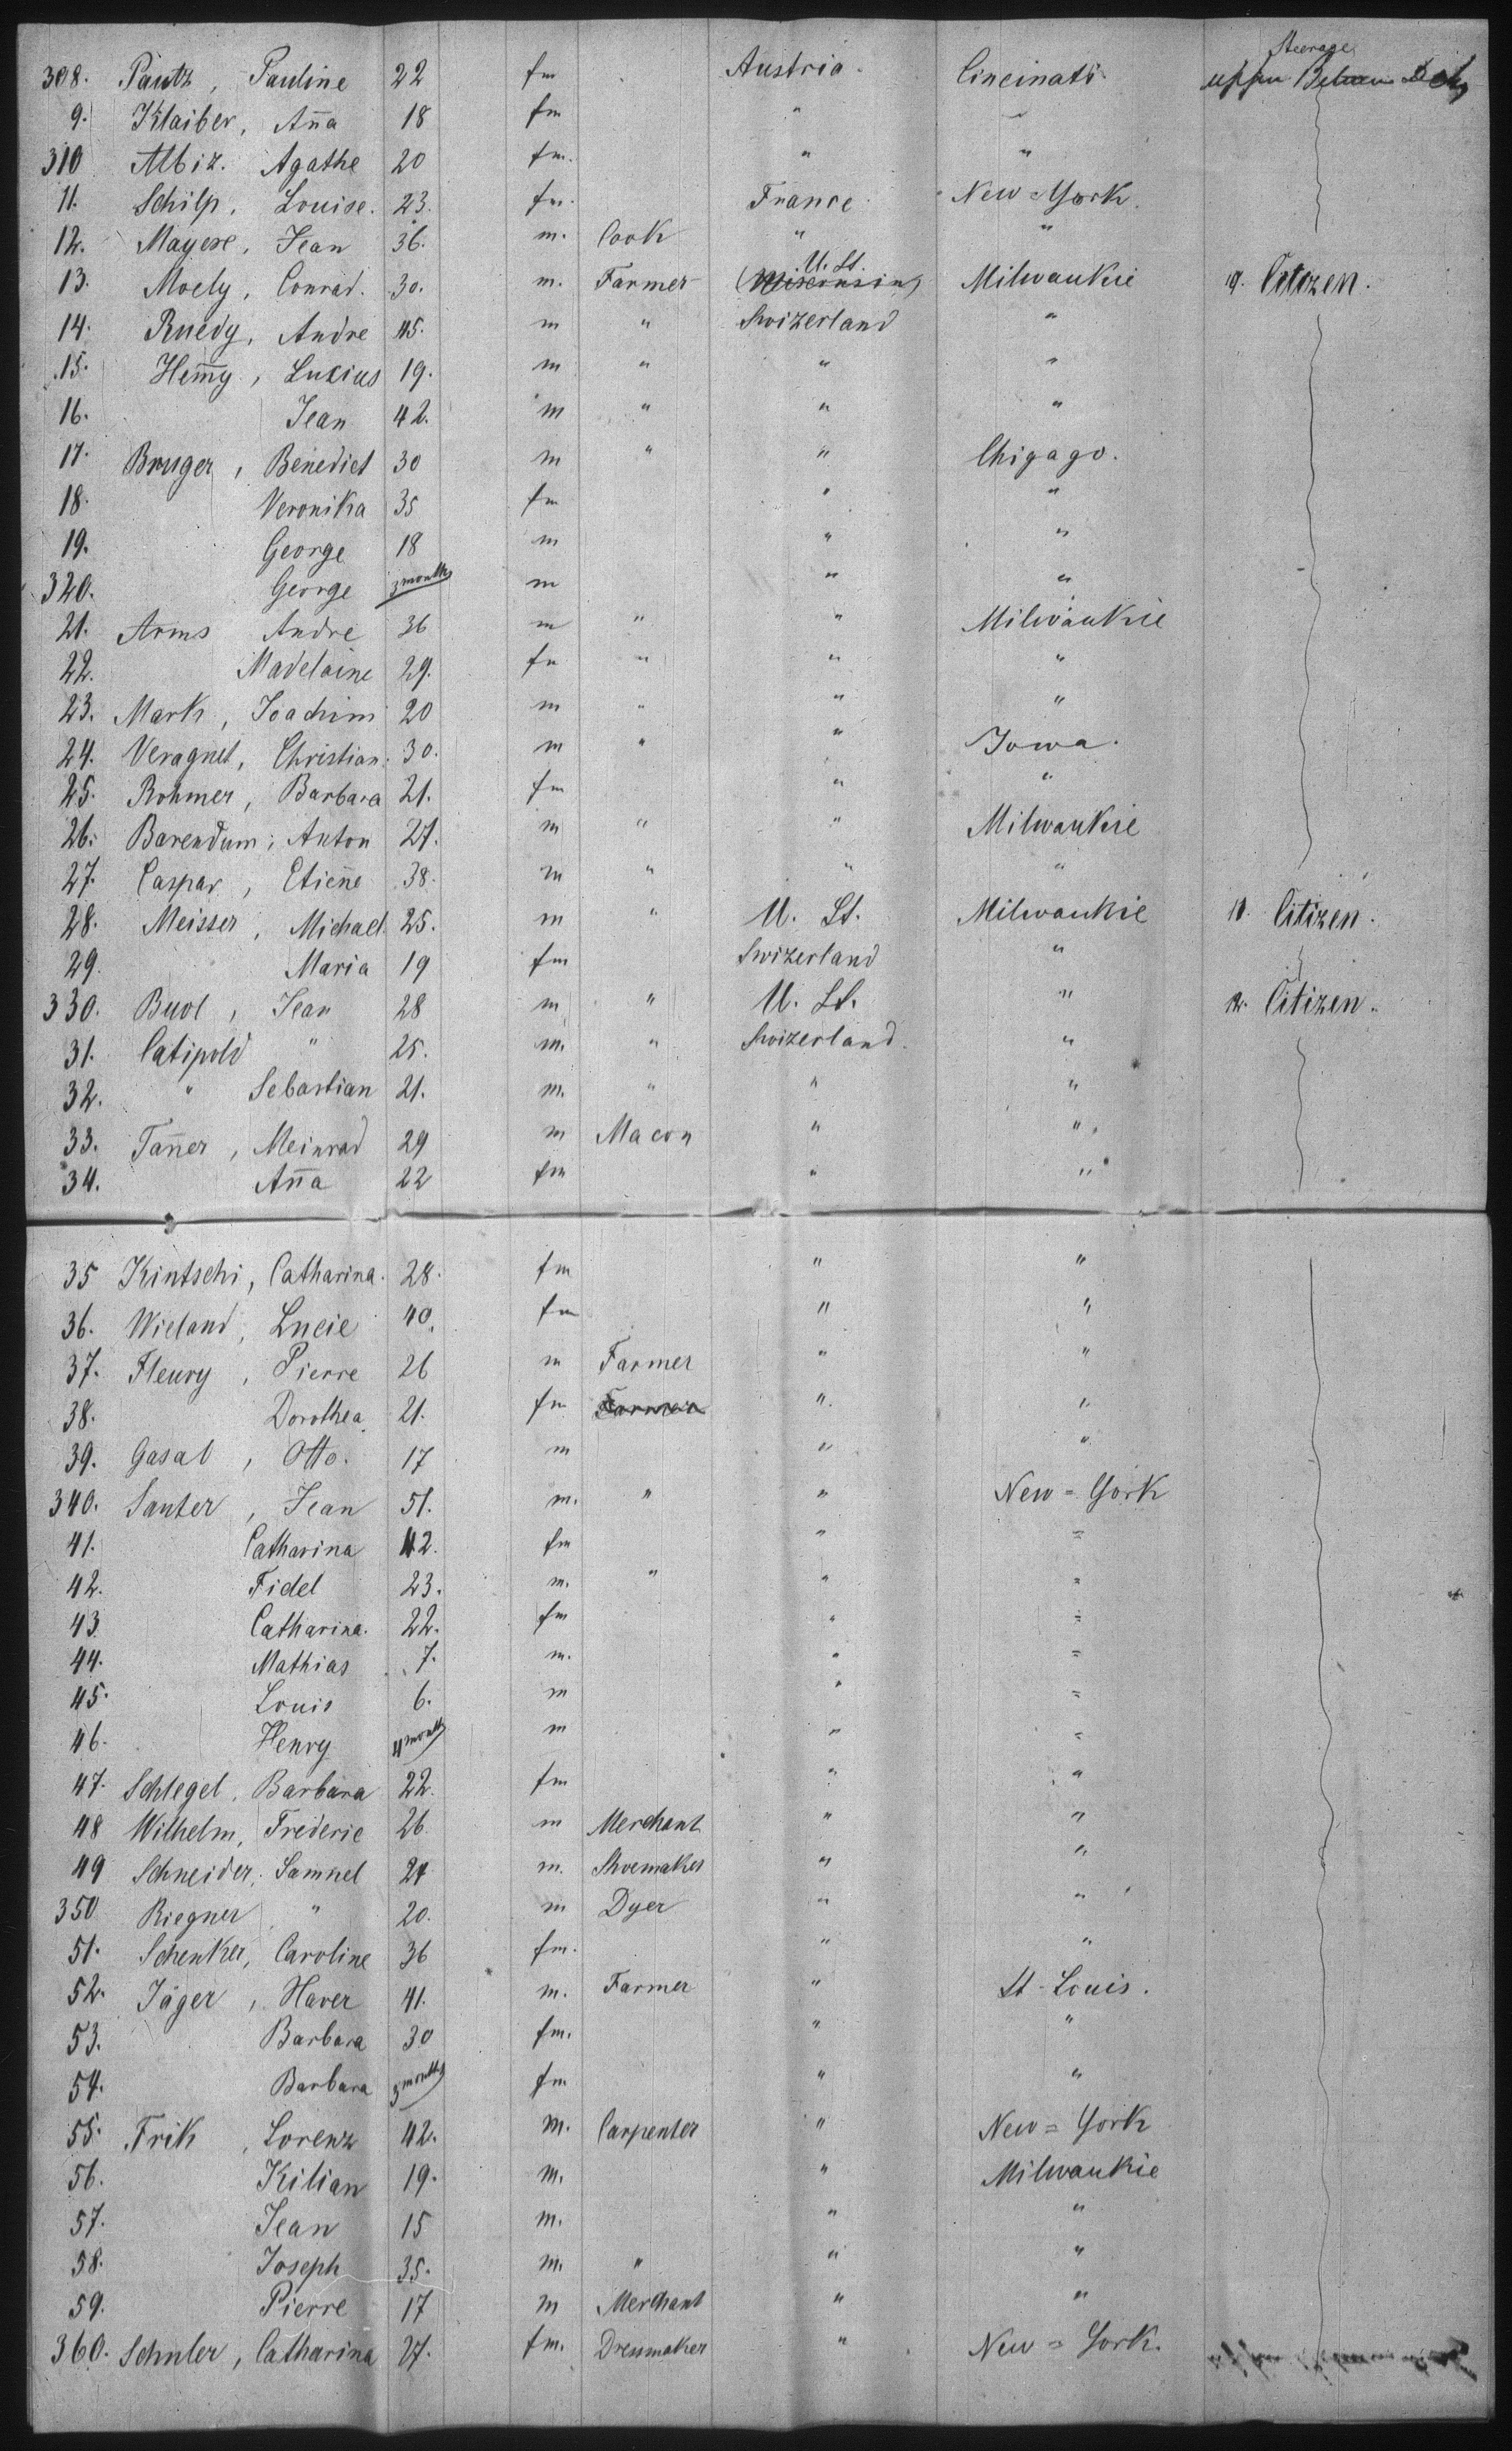 308. Pautz, Pauline 22 fm Austria. Cincinati. Steerage
uppr Between Deck
9. Klaiber, Aña 18 fm " "
310 Albiz. Agathe 20 fm. " "
11. Schilp, Louise. 23. fm. France. New=York.
12. Mayere, Jean 36. m. Cook " "
13. Moely, Conrad. 30. m. Farmer (Wisconsin) U. St. Milwaukie 9. Citizen.
14. Ruedy, Andre 45. m " Swizerland "
15. Hem̄y, Luzius 19. m " " "
16. Jean 42. m " " "
17. Bruger, Benedict 30 m " " Chigago.
18. Veronika 35 fm " "
19. George 18 m " "
320. George 3 months m " "
21. Arms Andre 36 m " " Milwaukie
22. Madelaine 29. fm " " "
23. Mark, Joachim 20 m " " "
24. Veragnet, Christian. 30. m " " Iowa.
25. Rohmer, Barbara 21. fm " "
26. Barendum, Anton 27. m " " Milwaukie
27. Caspar, Etieñe 38. m " " "
28. Meisser, Michael 25. m " U. St. Milwaukie 10. Citizen.
29. Maria 19 fm Swizerland "
330. Buol, Jean 28 m " U. St. " Citizen.
31. Catipold " 25. m. " Swizerland. "
32. " Sebastian 21. m. " " "
33. Tañer, Meinrad 29 m Macon " "
34. Aña 22 fm " "
35 Kintschi, Catharina. 28. fm " "
36. Wieland, Lucie 40. fm " "
37. Fleury, Pierre 26 m Farmer " "
38. Dorothea 21. fm Farmer " "
39. Gasal, Otto. 17 m " "
340. Santer, Jean 51. m. " " New=York
41. Catharina 42. fm " =
42. Fidel 23. m. " " =
43. Catharina. 22. fm " =
44. Mathias 7. m. " =
45. Louis 6. m " =
46. Henry 4 month m " =
47. Schlegel, Barbara 22. fm " "
48 Wilhelm, Frederic 26. m Merchant " "
49 Schneider, Samuel 24 m. Shoemaker " "
350 Riegner, " 20. m Dyer " "
51. Schenker, Caroline 36 fm. " "
52. Jäger, Haver 41. m. Farmer " St-Louis.
53. Barbara 30 fm. " "
54. Barbara 3 months fm " "
55. Frik, Lorenz 42. m. Carpenter " New=York
56. Kilian 19. m. " Milwaukie
57. Jean 15 m. " "
58. Joseph 35. m. " " "
59. Pierre 17 m Merchant " "
360. Schuler, Catharina 27. fm. Dressmaker " New=York.